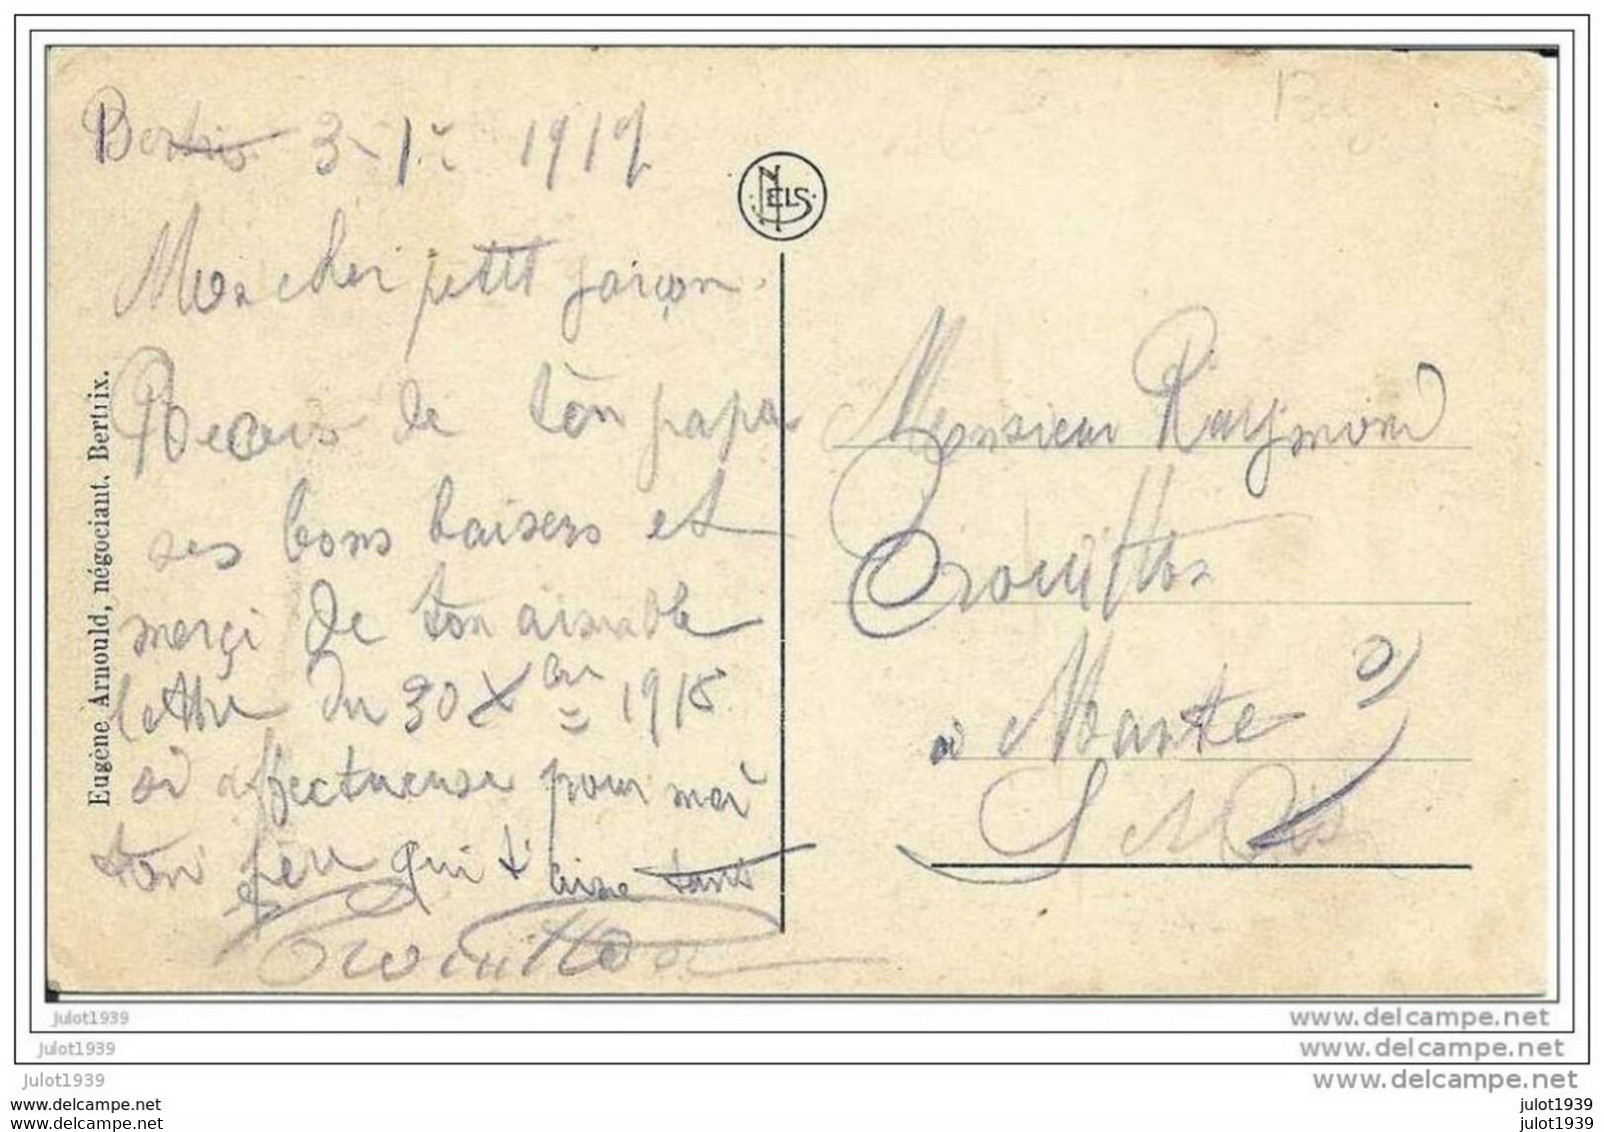 Bertrix 3-1- 1919
Mon cher petit garçon.
Recois de ton papa
ses bons baisers et
merçi de ton aimable
lettre du 30 Xbre 1918
si affectueuse pour moi
ton père qui t'aime tant
NELS
Monsieur Raymond
à Mante
S
Eugène Arnould, négociant, Bertrix.
julot1939
julot1939
julot1939
www.delcampe.net
www.delcampe.net
www.delcampe.net
www.delcampe.net
www.delcampe.net
julot1939
julot1939